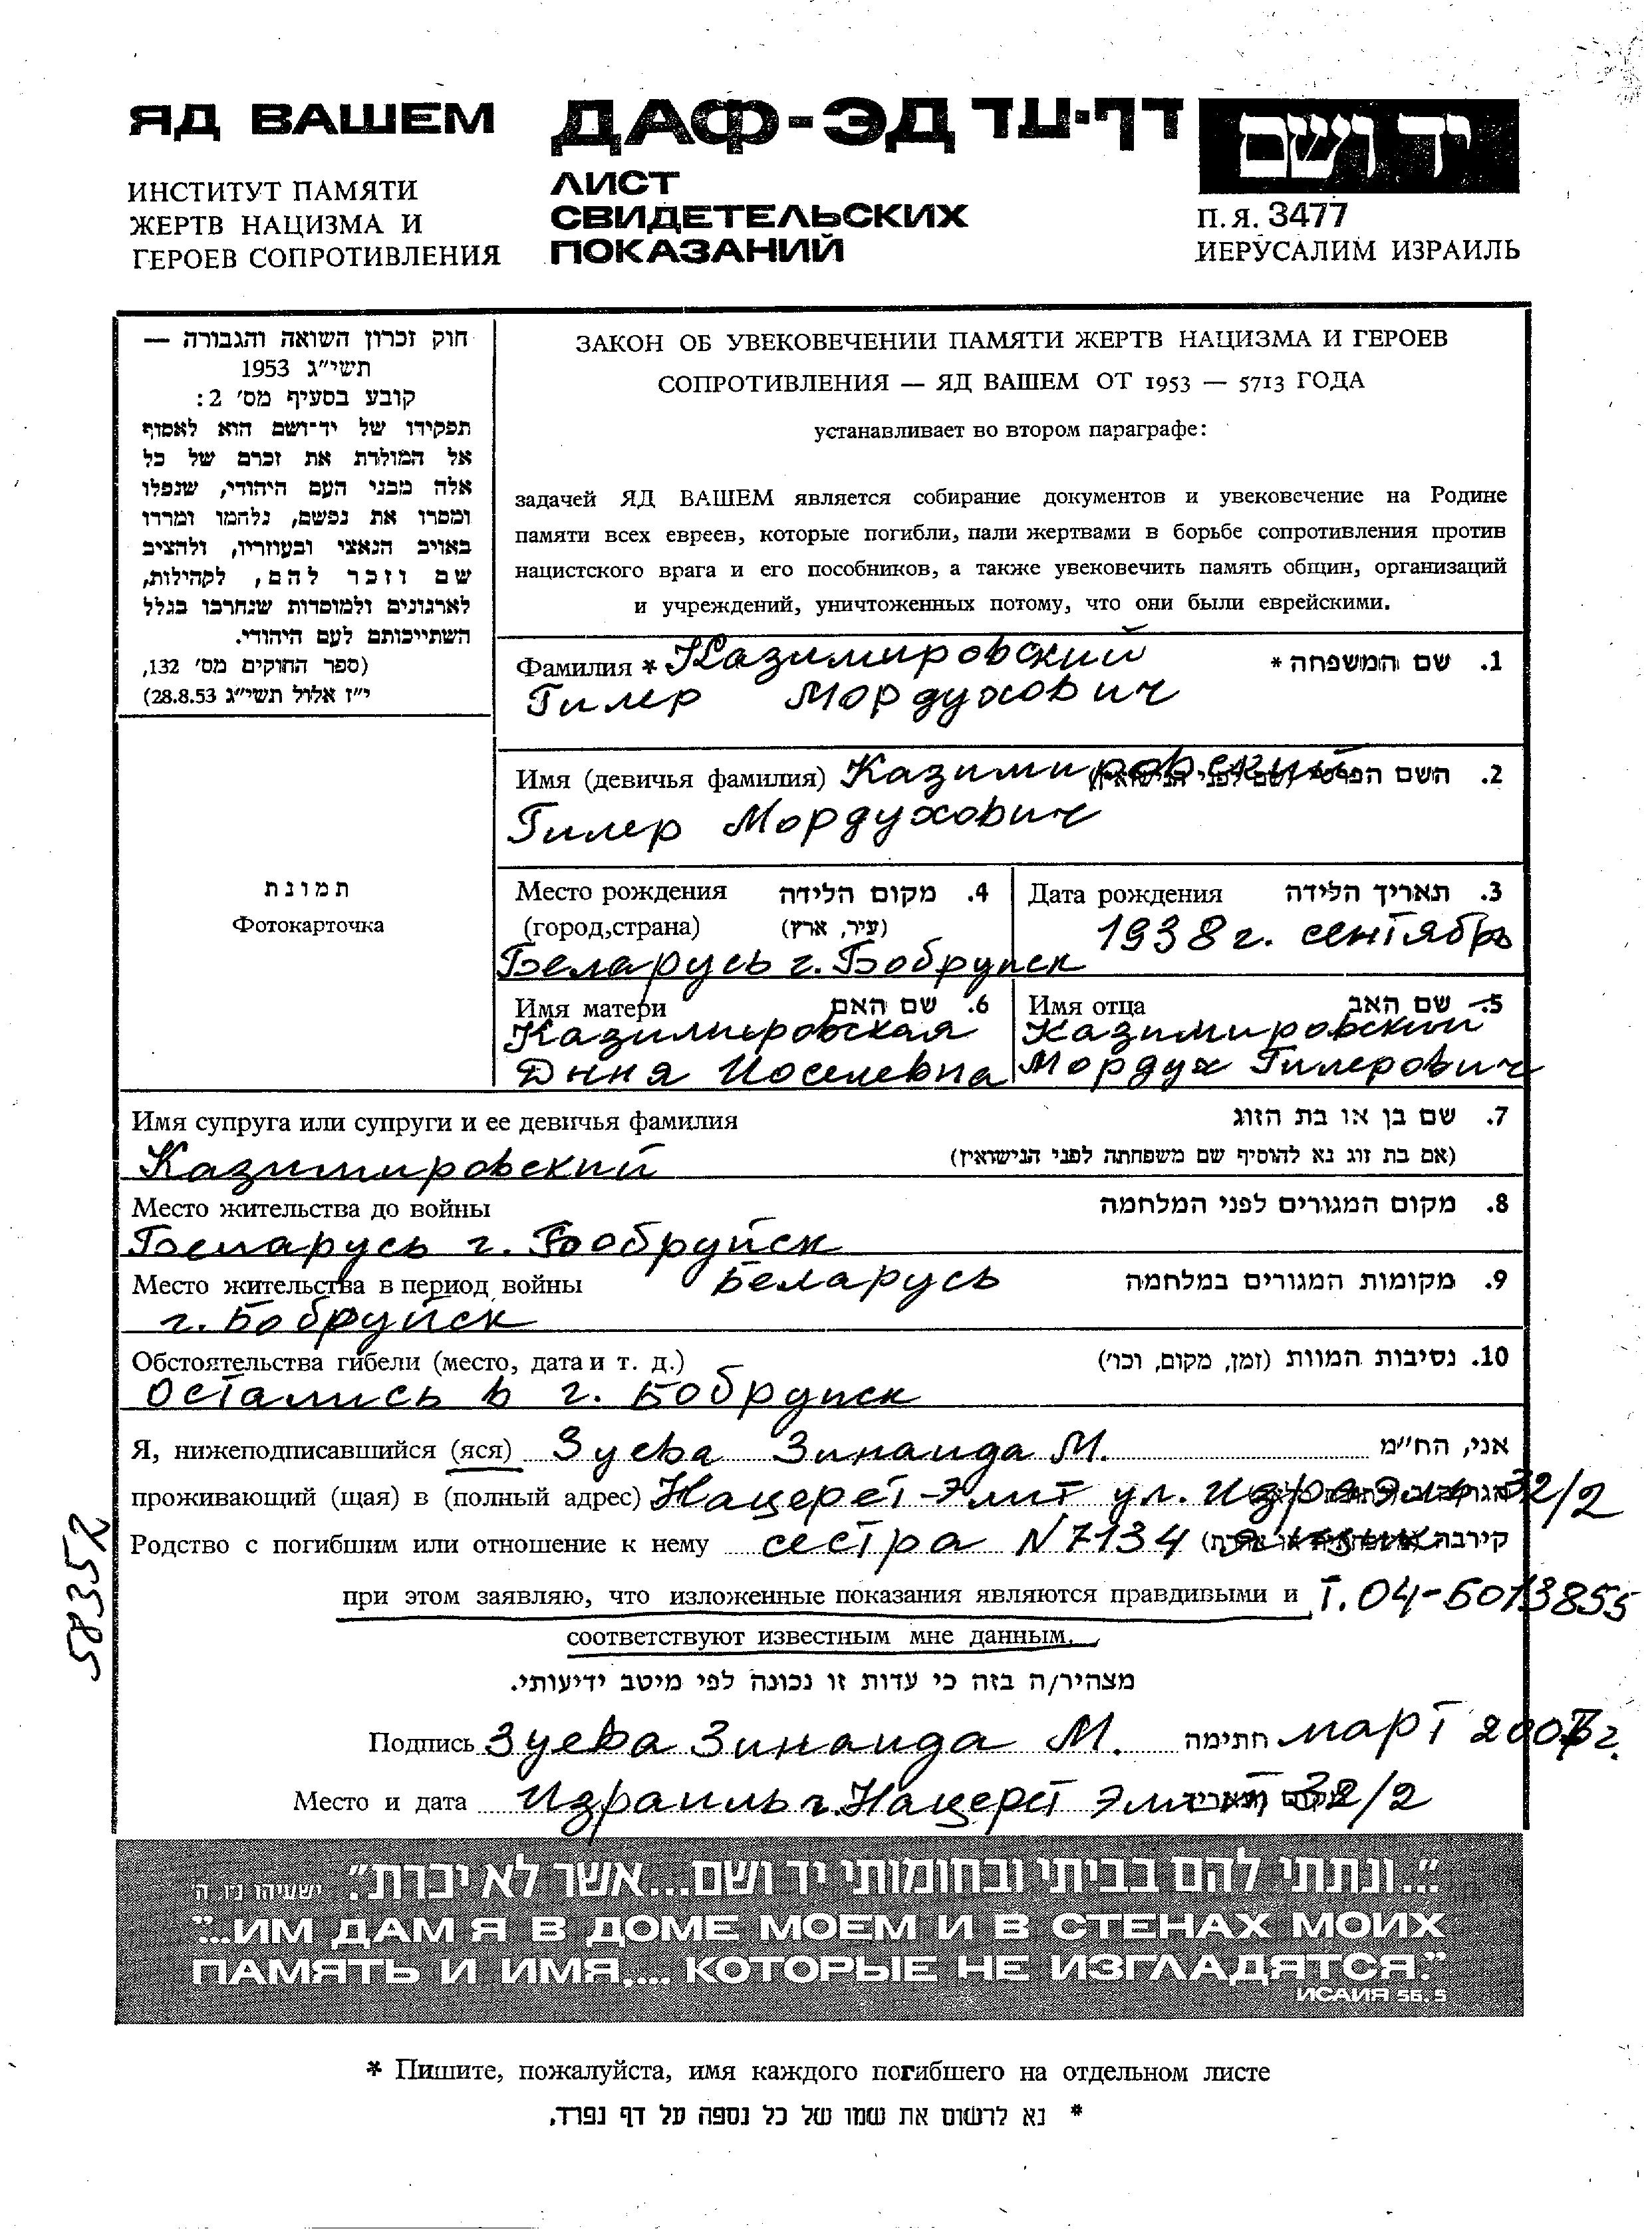 ЯД ВАШЕМ
ИНСТИТУТ ПАМЯТИ
ЖЕРТВ НАЦИЗМА И
ГЕРОЕВ СОПРОТИВЛЕНИЯ
ДАФ-ЭД דף-עד
ЛИСТ
СВИДЕТЕЛЬСКИХ
ПОКАЗАНИЙ
יד ושם
П.Я. 3477
ИЕРУСАЛИМ ИЗРАИЛЬ
חוק זכרון השואה והגבורה —
תשי״ג 1953
קובע בסעיף מס׳ 2:
תפקידו של יד־ושם הוא לאסוף
אל המולדת את זכרם של כל
אלה מבני העם היהודי, שנפלו
ומסרו את נפשם, נלחמו ומרדו
באויב הנאצי ובעוזריו, ולהציב
שם וזכר להם, לקהילות,
לארגונים ולמוסדות שנחרבו בגלל
השתייכותם לעם היהודי.
(ספר החוקים מס׳ 132,
י״ז אלול תשי״ג 28.8.53)
ЗАКОН ОБ УВЕКОВЕЧЕНИИ ПАМЯТИ ЖЕРТВ НАЦИЗМА И ГЕРОЕВ
СОПРОТИВЛЕНИЯ — ЯД ВАШЕМ ОТ 1953 — 5713 ГОДА
устанавливает во втором параграфе:
задачей ЯД ВАШЕМ является собирание документов и увековечение на Родине
памяти всех евреев, которые погибли, пали жертвами в борьбе сопротивления против
нацистского врага и его пособников, а также увековечить память общин, организаций
и учреждений, уничтоженных потому, что они были еврейскими.
Фамилия * Казимировский 1. שם המשפחה *
Гилер Мордухович
Имя (девичья фамилия) Казимировский 2. השם הפרטי (שם לפני הנישואין)
Гилер Мордухович
תמונת
Фотокарточка
Место рождения 4. מקום הלידה
(город,страна) (עיר, ארץ)
Беларусь г. Бобруйск
Дата рождения 3. תאריך הלידה
1938 г. сентябрь
Имя матери 6. שם האם
Казимировская
Дыня Иоселевна
Имя отца 5. שם האב
Казимировский
Мордух Гилерович
Имя супруга или супруги и ее девичья фамилия 7. שם בן או בת הזוג
Казимировский (אם בת זוג נא להוסיף שם משפחתה לפני הנישואין)
Место жительства до войны 8. מקום המגורים לפני המלחמה
Беларусь г. Бобруйск
Место жительства в период войны Беларусь 9. מקומות המגורים במלחמה
г. Бобруйск
Обстоятельства гибели (место, дата и т. д.) 10. נסיבות המוות (זמן, מקום, וכו׳)
Остались в г. Бобруйск
Я, нижеподписавшийся (яся) Зуева Зинаида М. אני, הח״מ
проживающий (щая) в (полный адрес) Нацерет-Элит ул. Израэль 32/2
Родство с погибшим или отношение к нему сестра N 7134 קירבה
при этом заявляю, что изложенные показания являются правдивыми и Т. 04-6013855
соответствуют известным мне данным.
מצהיר/ה בזה כי עדות זו נכונה לפי מיטב ידיעותי.
Подпись Зуева Зинаида М. חתימה март 2007г.
Место и дата Израиль г. Нацерет Элит 32/2
58352
״...ונתתי להם בביתי ובחומותי יד ושם...אשר לא יכרת״. ישעיהו נ״ו ה׳
"...ИМ ДАМ Я В ДОМЕ МОЕМ И В СТЕНАХ МОИХ
ПАМЯТЬ И ИМЯ.... КОТОРЫЕ НЕ ИЗГЛАДЯТСЯ."
ИСАИЯ 56, 5
* Пишите, пожалуйста, имя каждого погибшего на отдельном листе
* נא לרשום את שמו של כל נספה על דף נפרד.